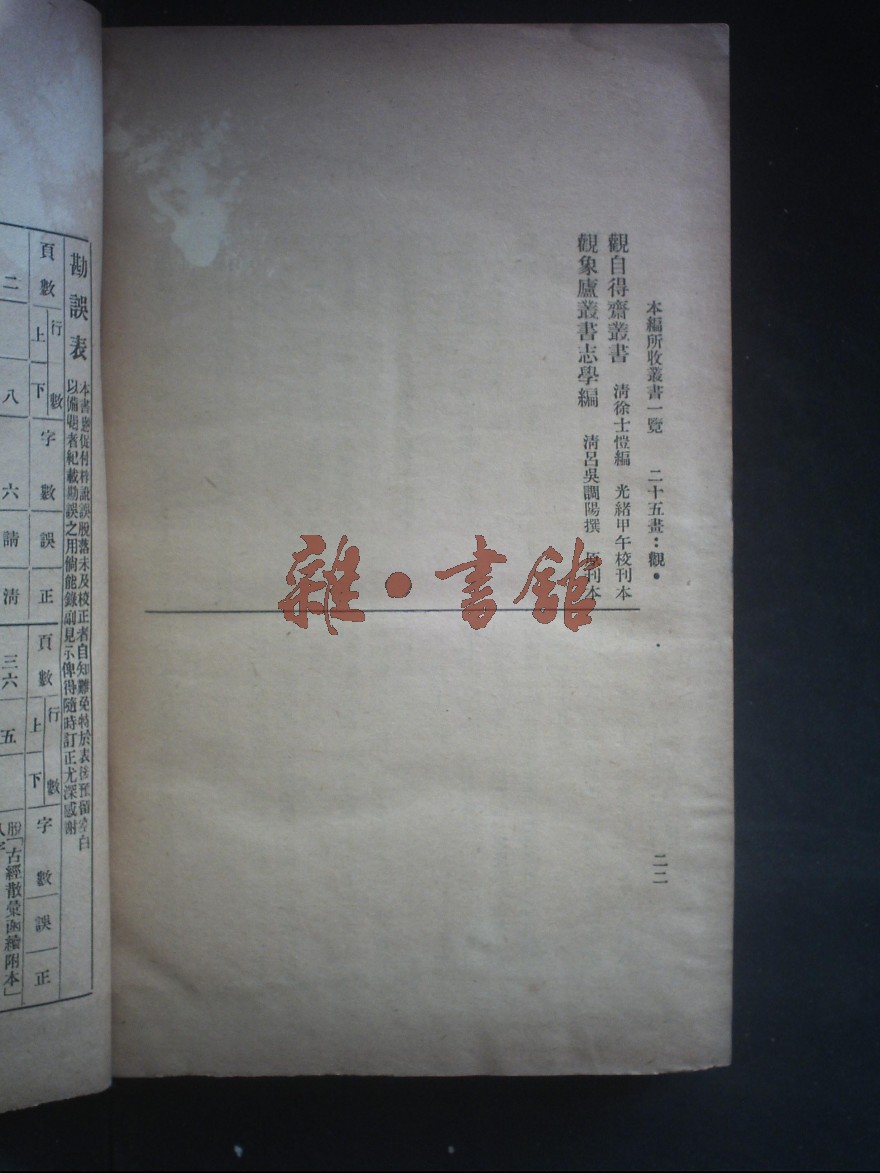 本編所收叢書一覽 二十五畫：觀• 二二
觀自得齋叢書 清徐士愷編 光緒甲午校刊本
觀象廬叢書志學編 清呂吳調陽撰 原刊本
雜•書館
勘誤表
本書悤促付梓訛誤脫落未及校正者自知難免特於表後預留空白
以備閱者紀載勘誤之用倘能錄副見示俾得隨時訂正尤深感謝
頁數 行數 上 下 字數 誤 正 頁數 行數 上 下 字數 誤 正
二 八 六 請 清 三六 五 脫「古經散彙函續附本」